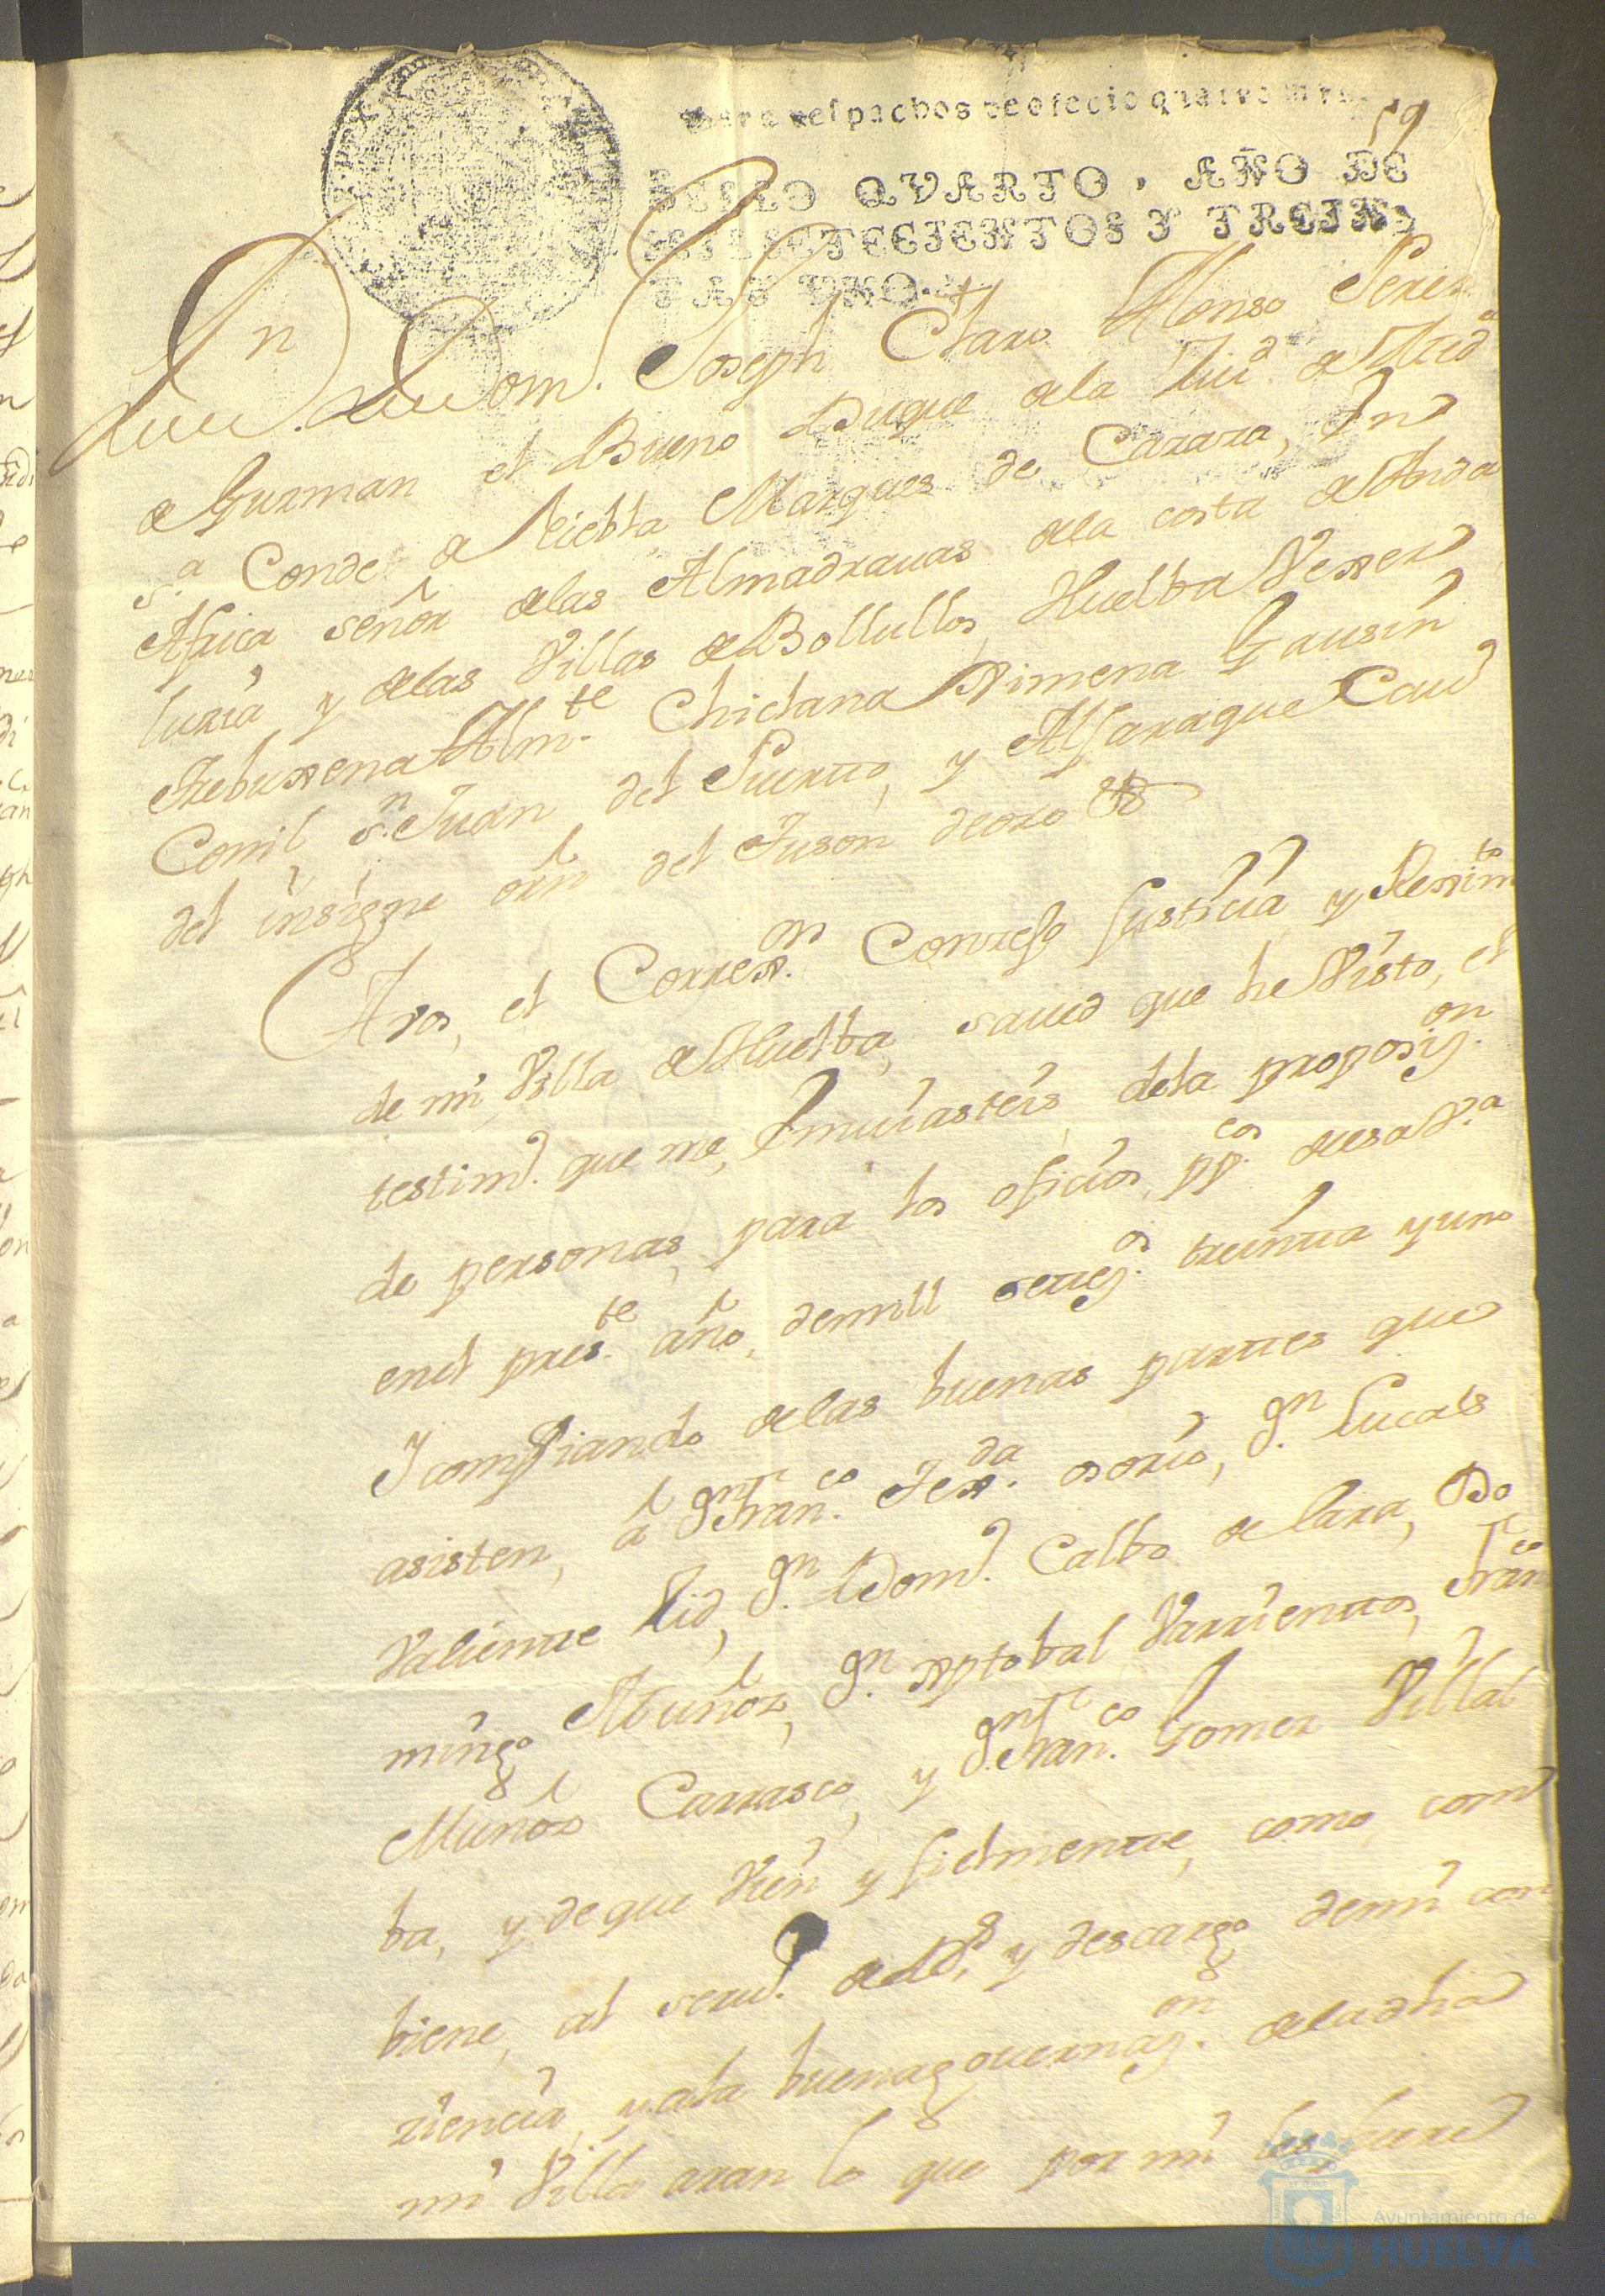 para despachos de oficio quatro mrs.
59
SELLO QVARTO, AÑO DE
MIL SETECIENTOS Y TREIN-
TA Y VNO.
Dn. Dom. Joseph Claro Alonso Perez
de Guzman el Bueno Duque de la Ciud. de Medª
sª. Conde de Niebla Marques de Cazaza, En
Africa señor de las Almadrauas de la costa de Anda
lucia y de las Villas de Bollullos, Huelba Vexer
Trebuxena Almte. Chiclana Ximena Gausin
Conil sn. Juan del Puerto, y Alfaraque Cauº
del insigne orn del Tuson de oro &
A vos, el Correxon. Conzejo Justicia y Reximto
de mi Villa de Huelba, saued que he Visto, el
testimº. que me, Emuiasteis, dela proposizon.
de personas, para los oficios, ppcos. de esa Vª.
en el preste. año, de mill setezos. treinta y uno
Y comfiando de las buenas partes que
asisten, a Dn Franco. Texda. osorio, Dn. Lucas
Valiente Cid, Dn. Domº. Calbo de Lara, Do
mingo Muñoz, Dn. Xptobal Varrientos, Franco
Muñoz Carrasco, y Dn Franco. Gomez Villal
ba, y de que Vien y fielmente, como, com
biene, al seruº. de Ds. y descargo de mi con
ziencia, y a la buena gouernazon. de la dha
mi Villa aran lo que por mi les fuere
Ayuntamiento de
HUELVA